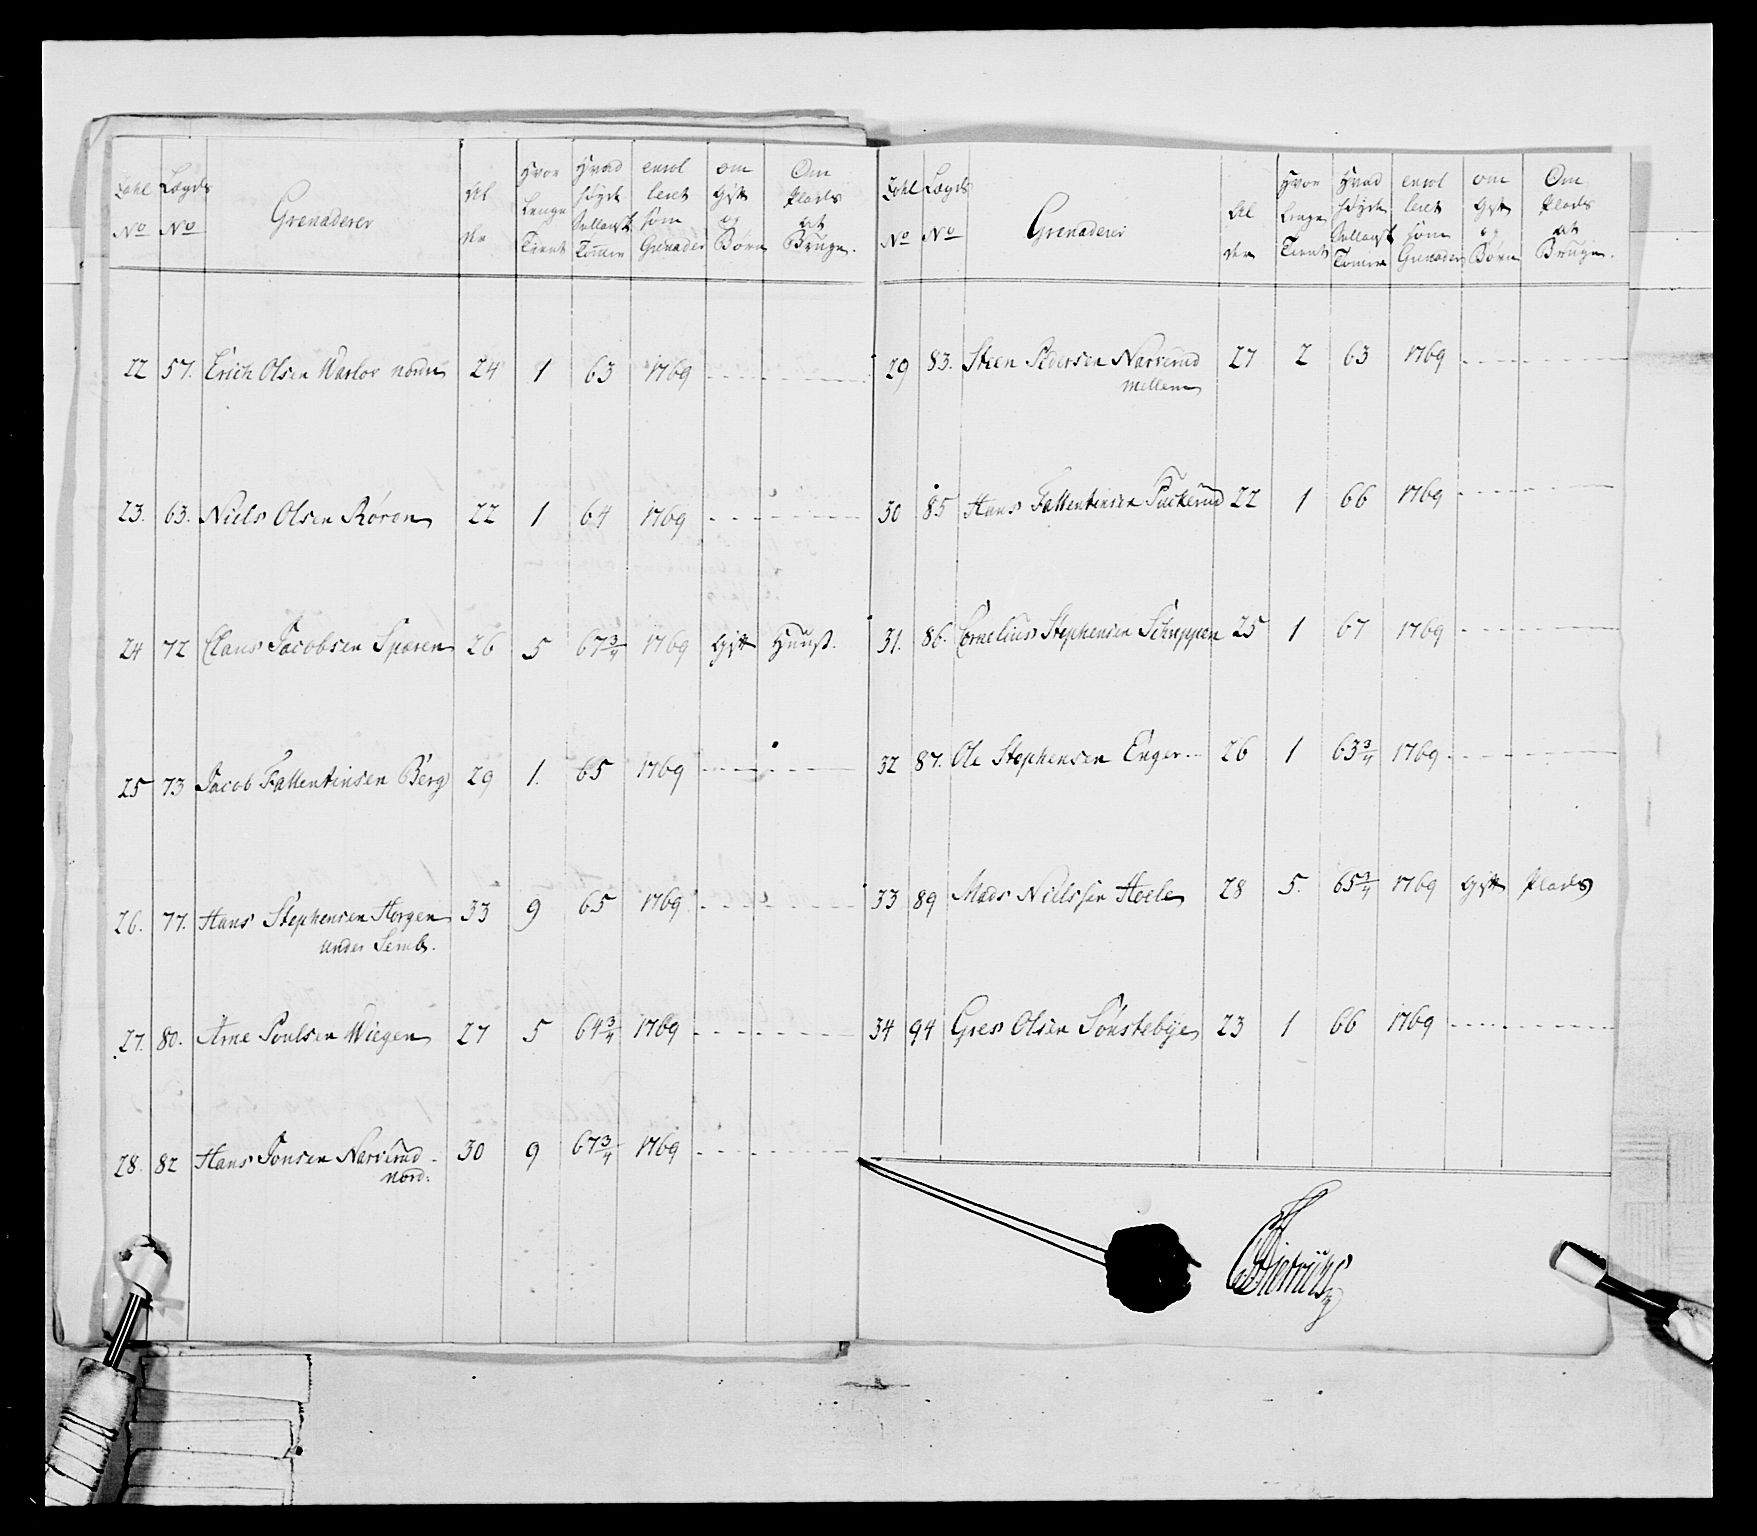 Tahl No | Lægds No | Grenaderer | Al der | Hvor Lenge Tient | Hvad Høyde Sellansk Tomer | enrol leret som Grenader | om Gift og Børn | Om Plads at Bruge.
22 57. Erich Olsen Warlor nordre 24 1 63 1769
23. 63. Niels Olsen Røren 22 1 64 1769
24 72 Claus Jacobsen Sparen 26 5 67 3/4 1769 Gift Huust.
25 73 Jacob Fallentinsen Berg 29 1. 65 1769
26. 77. Hans Stephensen Horgen 33 9 65 1769
under Semb.
27. 80. Arne Poulsen Wiegen 27 5 64 3/4 1769
28. 82 Hans Jonsen Narverud 30 9 67 3/4 1769
nord.
Tahl No | Lægds No | Grenaderer | Al der | Hvor Lenge Tient | Hvad Høyde Sellansk Tomer | enrol leret som Grenader | om Gift og Børn | Om Plads at Bruge.
29 83. Steen Pedersen Narverud 27 2 63 1769
mellem
30 85 Hans Fallentinsen Puckerud 22 1 66 1769
31. 86. Cornelius Stephensen Schuppen 25 1 67 1769
32 87. Ole Stephensen Enger 26 1 63 3/4 1769
33 89 Mads Nielssen Hoele 28 5. 65 3/4 1769 Gift Plads
34 94 Gres Olsen Sønstebye 23 1 66 1769